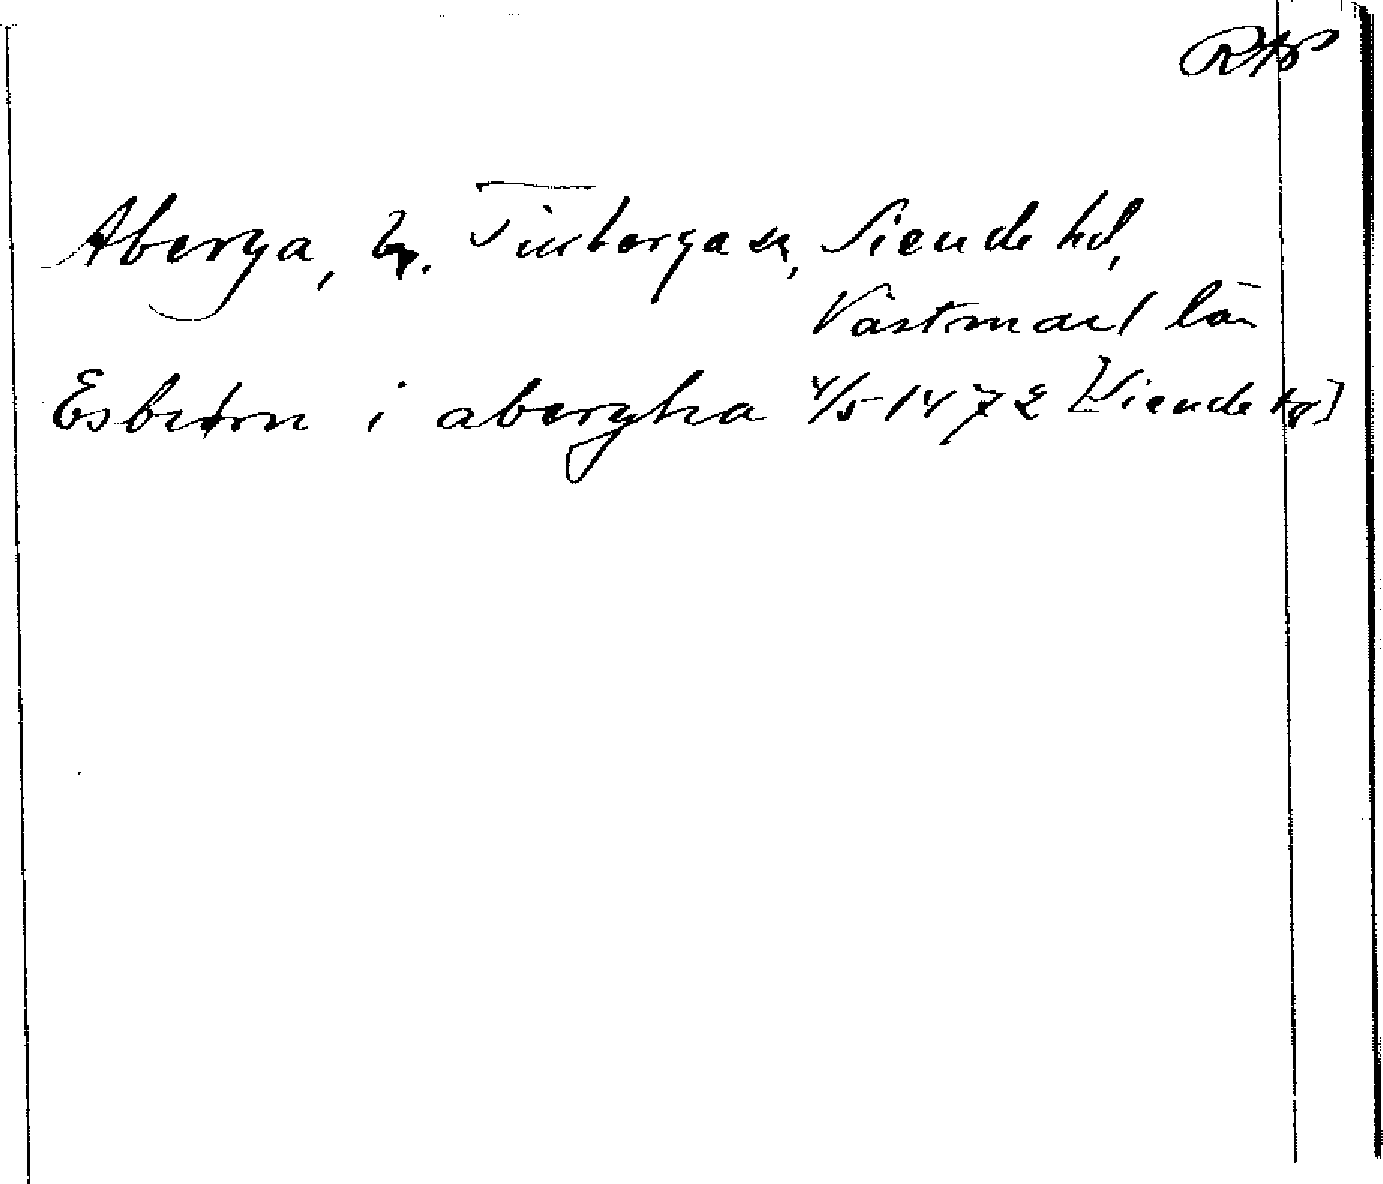 Aberga, by. Tortuna sn, Siende hd,
Västmanl län
Esbiørn i abergha 4/5 1472 [Siende hd]